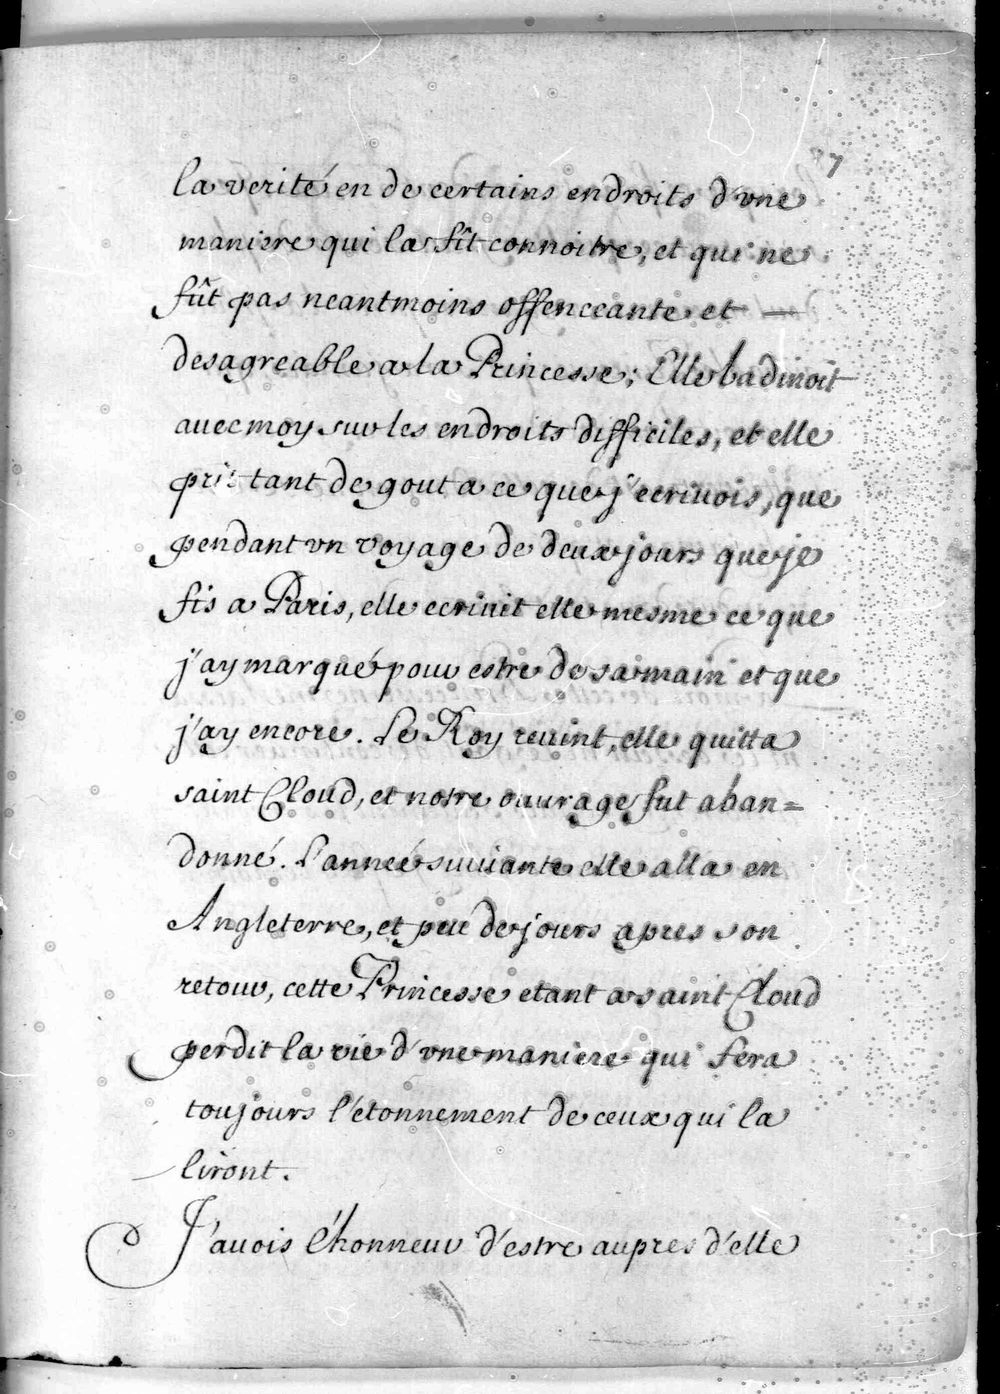 la verité en de certains endroits d'vne
maniere qui la fît connoitre, et qui ne
fût pas neantmoins offenceante et —
desagreable a la Princesse; Elle badinoit
auec moy sur les endroits difficiles, et elle
prit tant de gout a ce que j'ecriuois, que
pendant vn voyage de deux jours que je
fis a Paris, elle ecriuit elle mesme ce que
j'ay marqué pour estre de sa main et que
j'ay encore. Le Roy reuint, elle quitta
saint Cloud, et nostre ouurage fut aban=
donné. L'anneé suiuante elle alla en
Angleterre, et peu de jours apres son
retour, cette Princesse etant a saint Cloud
perdit la vie d'vne maniere qui fera
toujours l'etonnement de ceux qui la
liront.
J'auois l'honneur d'estre aupres d'elle